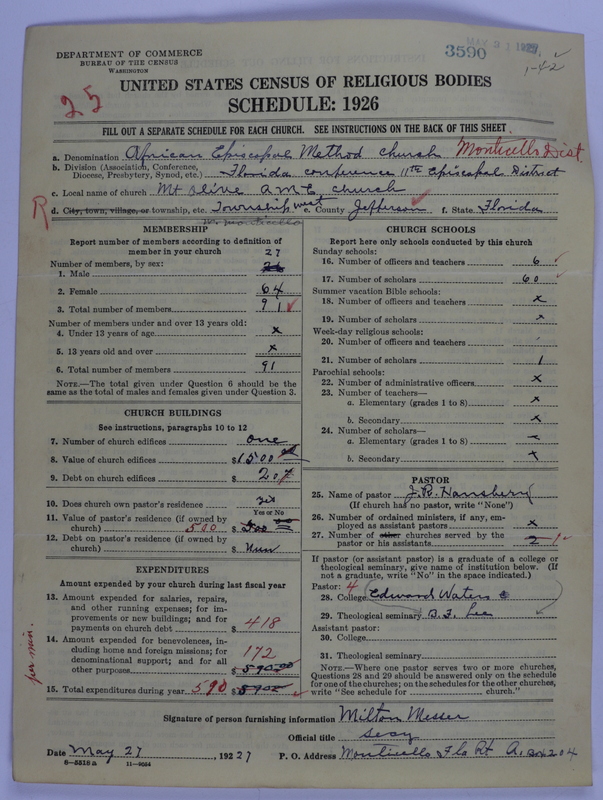 DEPARTMENT OF COMMERCE
BUREAU OF THE CENSUS
WASHINGTON
3590
MAY 31 1927
1-42
25
UNITED STATES CENSUS OF RELIGIOUS BODIES
SCHEDULE: 1926
FILL OUT A SEPARATE SCHEDULE FOR EACH CHURCH. SEE INSTRUCTIONS ON THE BACK OF THIS SHEET.
a. Denomination African Episcopal Method church Monticello Dist.
b. Division (Association, Conference, Diocese, Presbytery, Synod, etc.) Florida conference 11th Episcopal District
c. Local name of church Mt Olive A M E church
R
d. City, town, village, or township, etc. Township west e. County Jefferson f. State Florida
W. Monticello
MEMBERSHIP
Report number of members according to definition of member in your church
Number of members, by sex:
1. Male 27
2. Female 64
3. Total number of members 91
Number of members under and over 13 years old:
4. Under 13 years of age x
5. 13 years old and over x
6. Total number of members 91
NOTE.—The total given under Question 6 should be the same as the total of males and females given under Question 3.
CHURCH BUILDINGS
See instructions, paragraphs 10 to 12
7. Number of church edifices one
8. Value of church edifices $1500
9. Debt on church edifices $ 207
10. Does church own pastor's residence yes
Yes or No
11. Value of pastor's residence (if owned by church) 500 $
12. Debt on pastor's residence (if owned by church) $ Nun
EXPENDITURES
Amount expended by your church during last fiscal year
13. Amount expended for salaries, repairs, and other running expenses; for improvements or new buildings; and for payments on church debt $ 418
14. Amount expended for benevolences, including home and foreign missions; for denominational support; and for all other purposes 172 $590.00
15. Total expenditures during year 590 $ 590.00
per min.
CHURCH SCHOOLS
Report here only schools conducted by this church
Sunday schools:
16. Number of officers and teachers 6
17. Number of scholars 60
Summer vacation Bible schools:
18. Number of officers and teachers x
19. Number of scholars x
Week-day religious schools:
20. Number of officers and teachers
21. Number of scholars 1
Parochial schools:
22. Number of administrative officers x
23. Number of teachers—
a. Elementary (grades 1 to 8) x
b. Secondary x
24. Number of scholars—
a. Elementary (grades 1 to 8)
b. Secondary x
PASTOR
25. Name of pastor J. R. Hansbery
(If church has no pastor, write "None")
26. Number of ordained ministers, if any, employed as assistant pastors x
27. Number of other churches served by the pastor or his assistants 2 1
If pastor (or assistant pastor) is a graduate of a college or theological seminary, give name of institution below. (If not a graduate, write "No" in the space indicated.)
Pastor: 4
28. College Edward Waters C
29. Theological seminary B. F. Lee
Assistant pastor:
30. College
31. Theological seminary
NOTE.—Where one pastor serves two or more churches, Questions 28 and 29 should be answered only on the schedule for one of the churches; on the schedules for the other churches, write "See schedule for church."
Signature of person furnishing information Milton Messer
Official title secy
Date May 27, 1927 P. O. Address Monticello Fla Rt A. Box 204
8-5518 a 11-9054